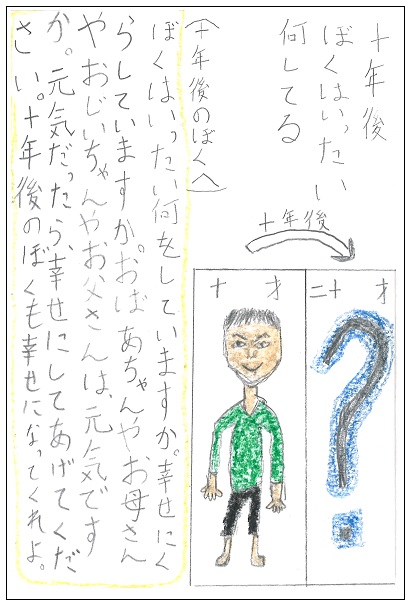 十年後
ぼくはいったい
何してる
十年後
十才
二十才
?
(十年後のぼくへ)
ぼくはいったい何をしていますか。幸せにく
らしていますか。おばあちゃんやお母さん
やおじいちゃんやお父さんは、元気です
か。元気だったら、幸せにしてあげてくだ
さい。十年後のぼくも幸せになってくれよ。